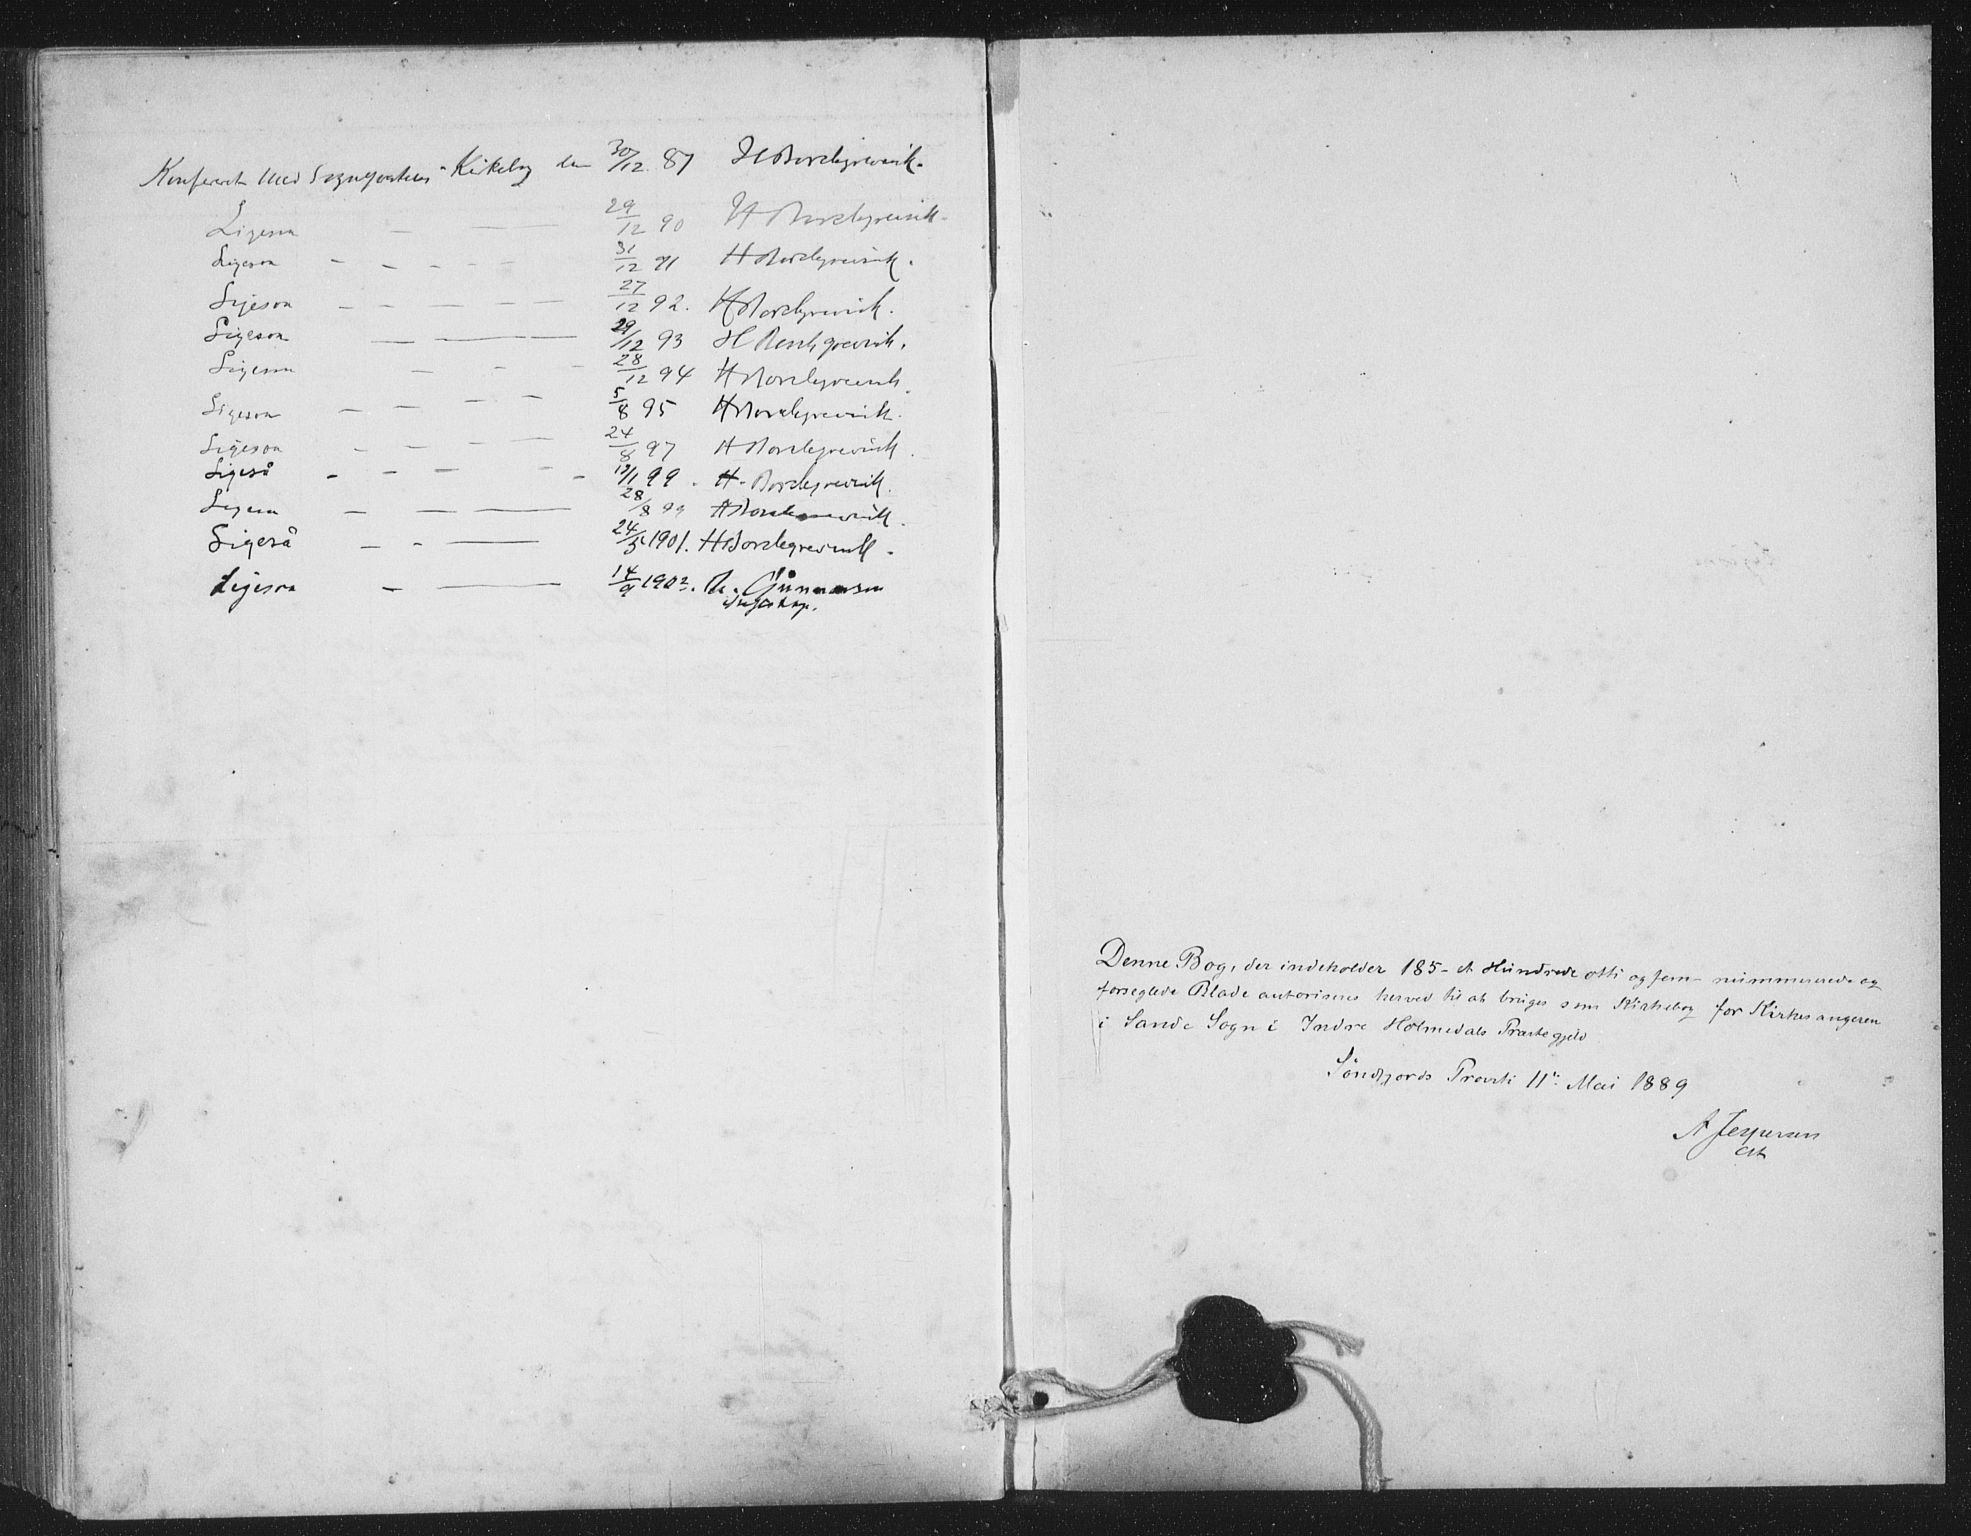 Konfereret med Sogneprestens Kirkebog den 30/12 87 H Borchgrevink.
Ligesaa — — 29/12 90 H Borchgrevink.
Ligesaa - - - - - 31/12 91 H Borchgrevink.
Ligesaa — — — — — 27/12 92. H Borchgrevink.
Ligesaa — — — 29/12 93 H Borchgrevink.
Ligesaa — - - 28/12 94 H Borchgrevink.
Ligesaa — — — — 5/8 95 H Borchgrevink.
Ligesaa — — — 24/8 97 H Borchgrevink.
Ligeså - - — - - /1 99. H. Borchgrevink.
Ligesaa — — — 28/8 99 H Borchgrevink.
Ligeså — - — 24/5 1901. H Borchgrevink.
Ligesaa — — 14/9 1902. Gunnarsen
Denne Bog, der indeholder 185 - et Hundrede otti og fem - nummererede og
forseglede Blade autoriseres herved til at bruges som Kirkebog for Kirkesangeren
i Sande Sogn i Indre Holmedals Præstegjeld
Søndfjords Provsti 11te Mai 1889
A Jespersen
cst